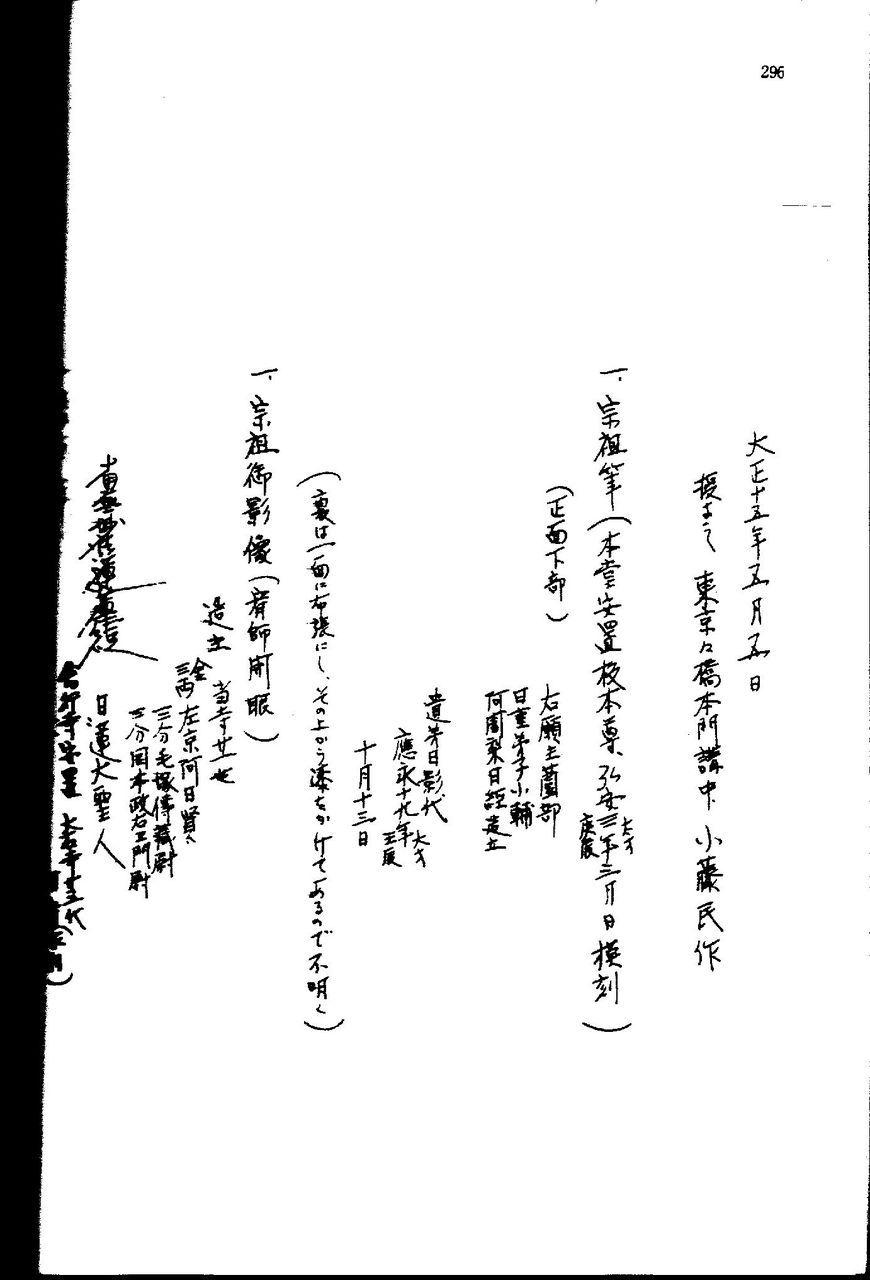 296
大正十五年五月五日
授与之 東京々橋本門講中 小藤民作
一、宗祖筆(本堂安置板本尊、弘安三年 太才庚辰 三月日模刻)
(正面下部)
右願主薗部
日重弟子小輔
阿闍梨日経造立
遺弟日影代
應永十九年 太才壬辰
十月十三日
(裏は一面に布張にし、その上から漆をかけてあるので不明)
一、宗祖御影像(育師開眼)
造立 当寺廿一世
金三両 左京阿日賢
三分毛塚傳藏尉
三分岡本政右エ門尉
南無妙法蓮華経
日蓮大聖人